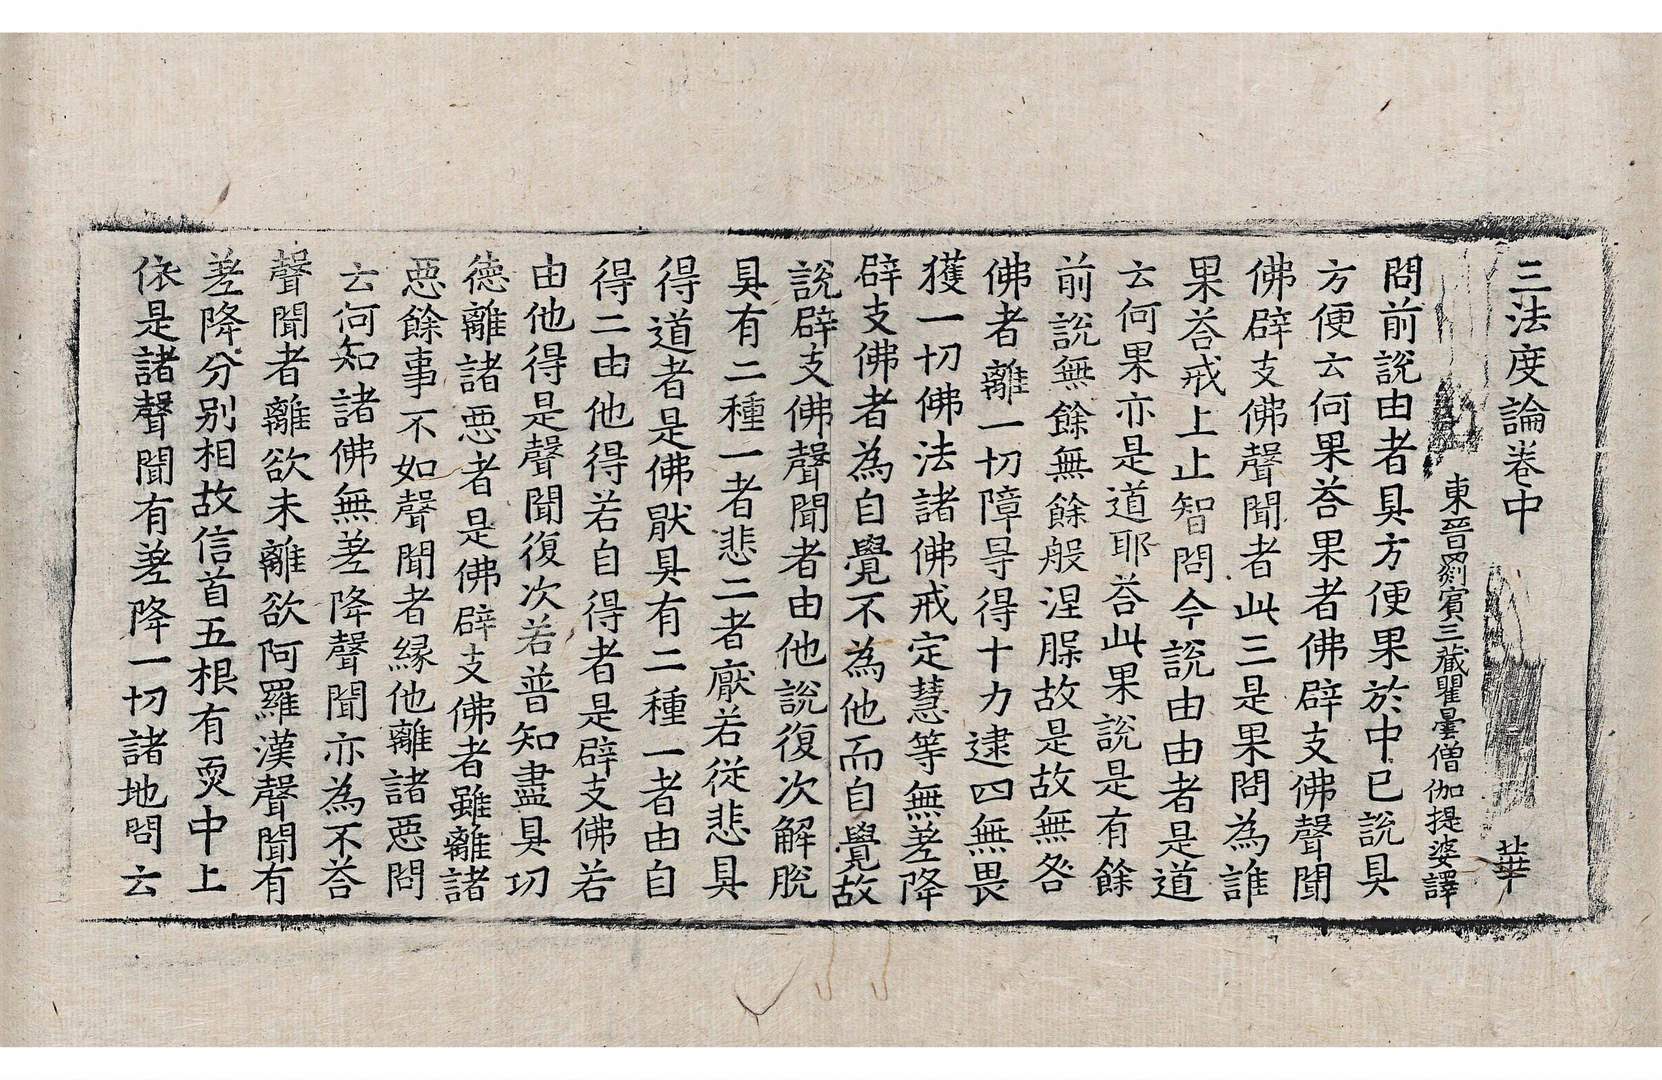 三法度論卷中 華
東晉罽賓三藏瞿曇僧伽提婆譯
問前說由者具方便果於中已說具
方便云何果荅果者佛辟支佛聲聞
佛辟支佛聲聞者此三是果問為誰
果荅戒上止智問今說由由者是道
云何果亦是道耶荅此果說是有餘
前說無餘無餘般涅脲故是故無咎
佛者離一切障导得十力逮四無畏
獲一切佛法諸佛戒定慧等無差降
辟支佛者為自覺不為他而自覺故
說辟支佛聲聞者由他說復次解脫
具有二種一者悲二者厭若從悲具
得道者是佛猒具有二種一者由自
得二由他得若自得者是辟支佛若
由他得是聲聞復次若普知盡具功
德離諸惡者是佛辟支佛者雖離諸
惡餘事不如聲聞者緣他離諸惡問
云何知諸佛無差降聲聞亦為不荅
聲聞者離欲未離欲阿羅漢聲聞有
差降分別相故信首五根有耎中上
依是諸聲聞有差降一切諸地問云